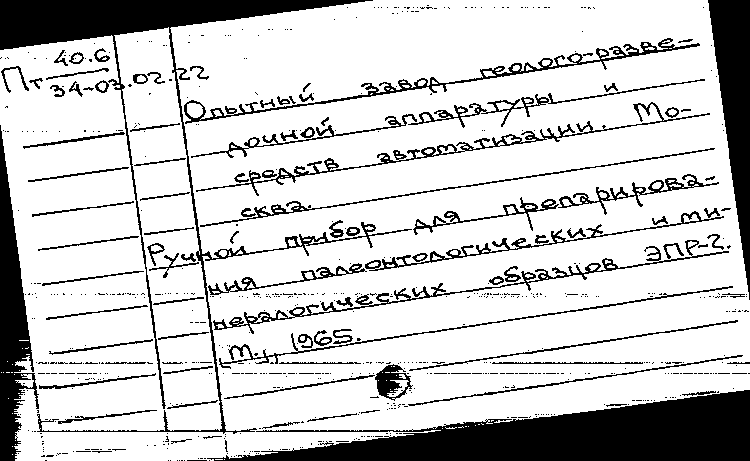 40.6
Пт 34-03.02.22
Опытный завод геолого-разве-
дочной аппаратуры и
средств автоматизации. Мо-
сква.
Ручной прибор для препарирова-
ния палеонтологических и ми-
нералогических образцов ЭПР-2.
[М.], 1965.